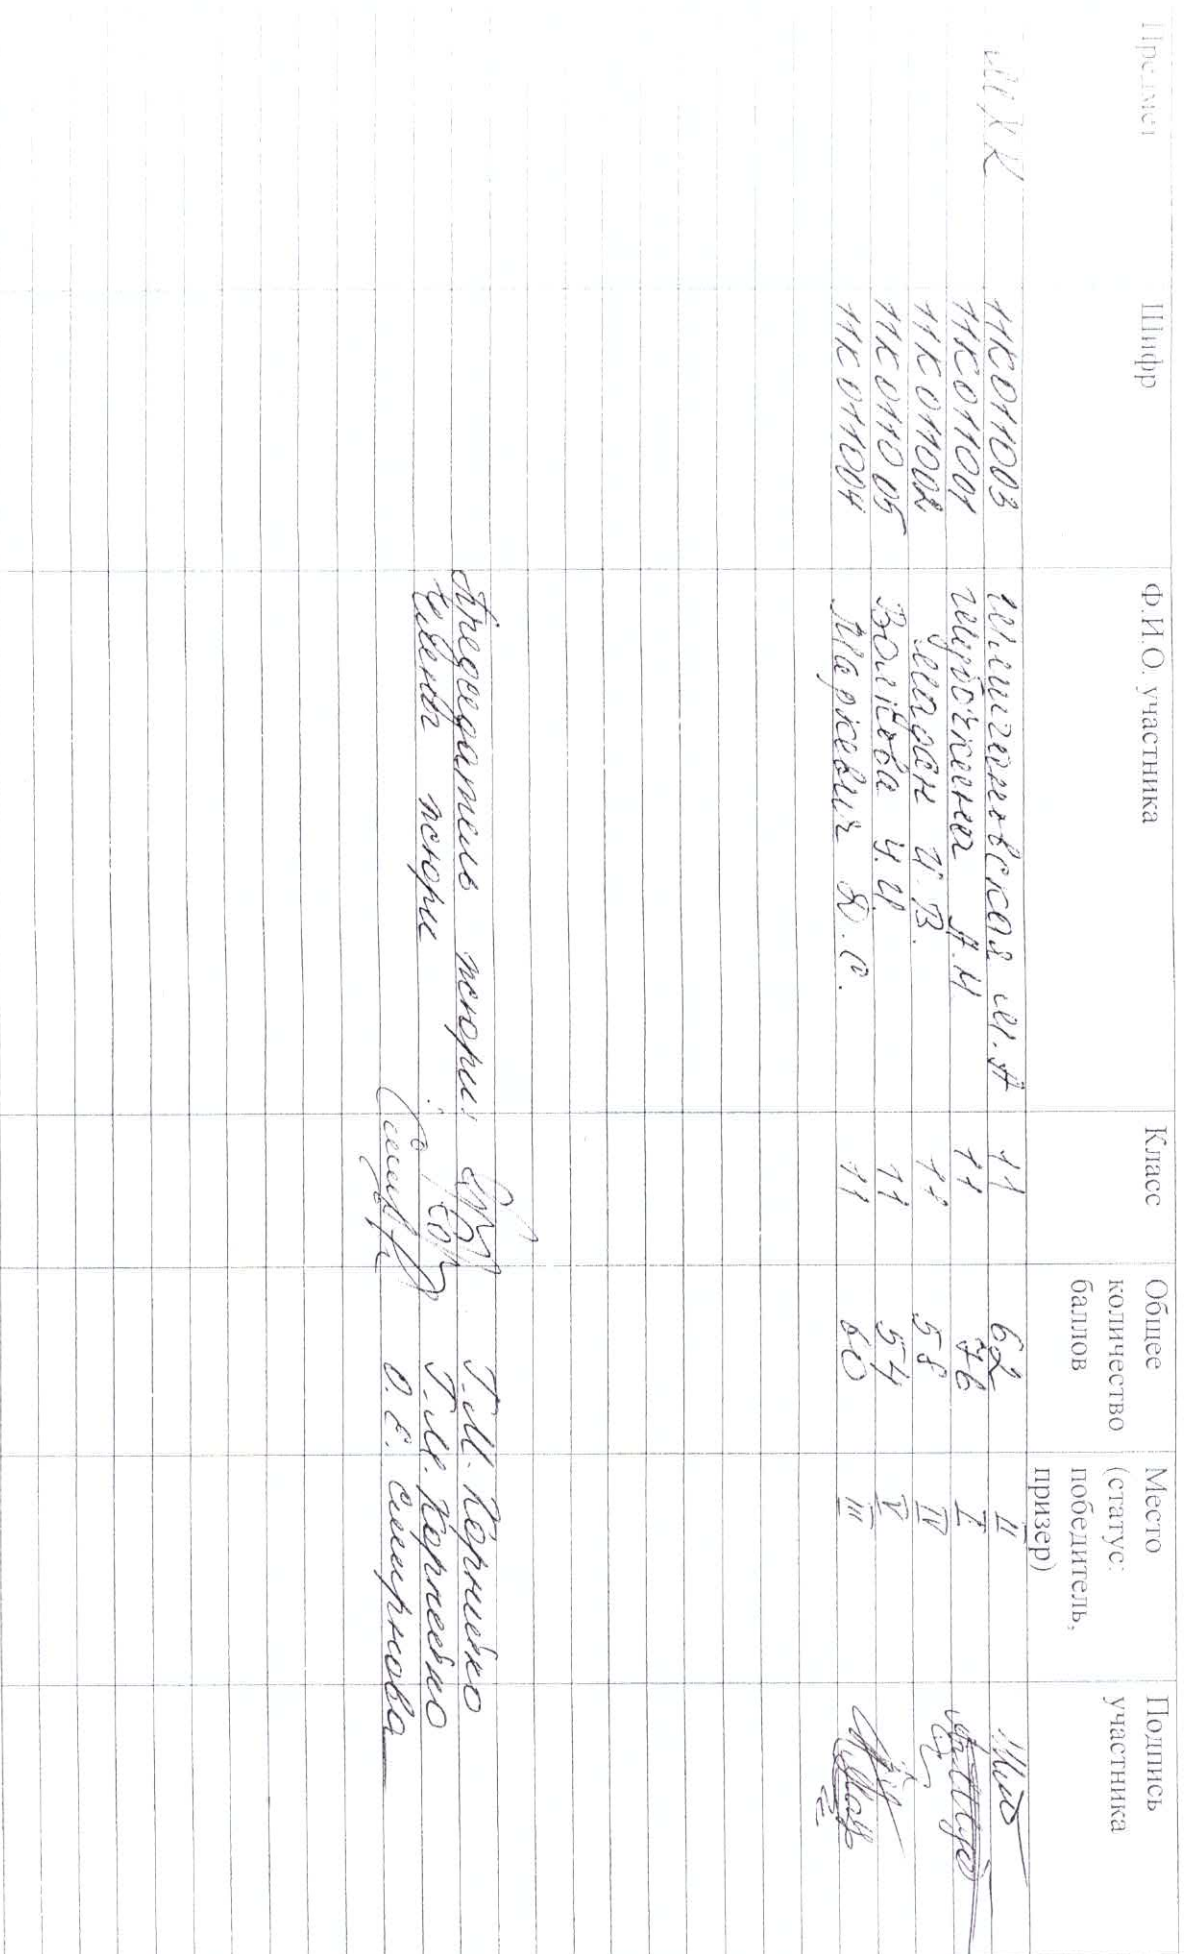 Предмет Шифр Ф.И.О. участника Класс Общее количество баллов Место (статус: победитель, призер) Подпись участника
МХК 11К011003 М.А 11 62 II
11К011001 А.Н 11 76 I
11К011002 И.В. 11 58 IV
11К011005 Волкова 11 54 V
11К011004 Маркевич Д.С. 11 60 III
Председатель жюри: Т.М. Корниенко
Члены жюри: Т.М. Корниенко
О.Е. Смирнова